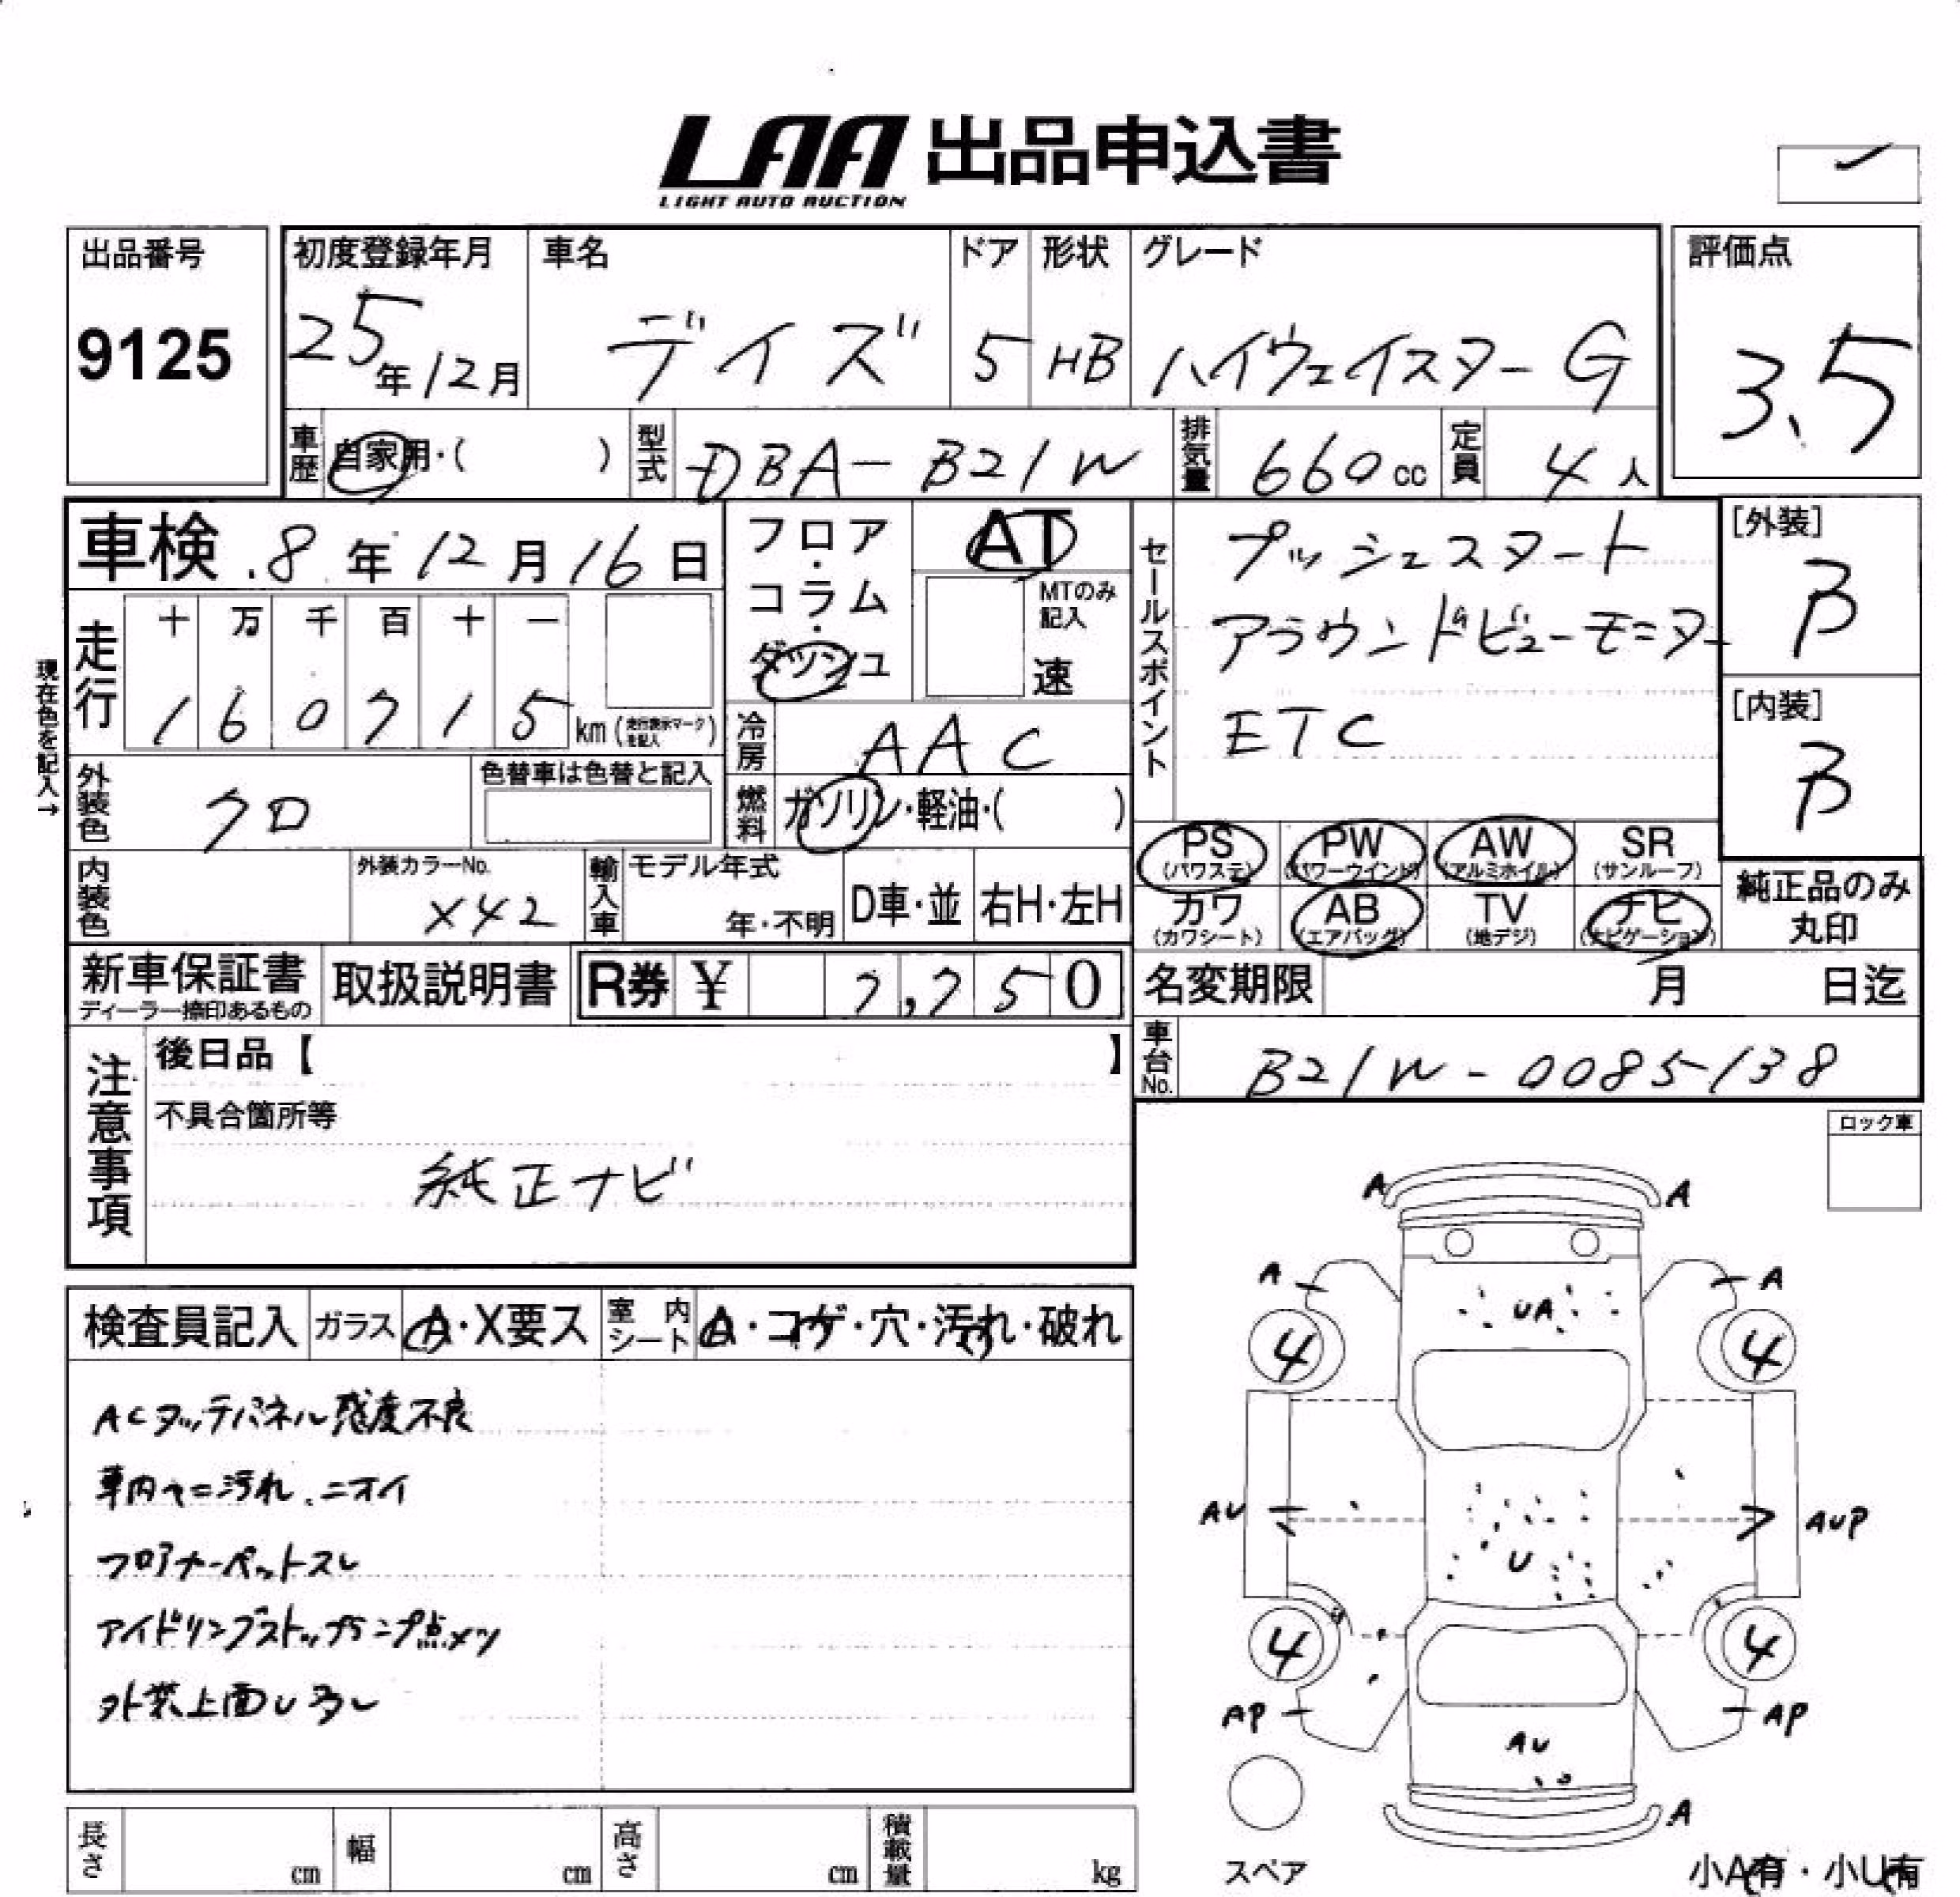 LAA 出品申込書
LIGHT AUTO AUCTION
出品番号
9125
初度登録年月
25年12月
車名
デイズ
ドア
5
形状
HB
グレード
ハイウェイスターG
評価点
3.5
車歴 自家用・( )
型式 DBA-B21W
排気量 660cc
定員 4人
車検 8年12月16日
フロア・コラム・ダッシュ
AT
MTのみ記入
速
セールスポイント
プッシュスタート
アラウンドビューモニター
ETC
[外装]
B
[内装]
B
現在色を記入→
走行
十 万 千 百 十 一
1 6 0 7 1 5 km (走行表示マークを記入)
冷房 AAC
外装色 クロ
色替車は色替と記入
燃料 ガソリン・軽油・( )
PS (パワステ) PW (パワーウインド) AW (アルミホイル) SR (サンルーフ)
カワ (カワシート) AB (エアバッグ) TV (地デジ) ナビ (ナビゲーション)
純正品のみ丸印
内装色
外装カラーNo.
X42
輸入車 モデル年式
年・不明
D車・並
右H・左H
新車保証書
ディーラー捺印あるもの
取扱説明書
R券 ¥ 7,750
名変期限 月 日迄
車台No. B21W-0085138
注意事項
後日品【 】
不具合箇所等
純正ナビ
ロック車
検査員記入 ガラス A・X要ス 室内シート A・コゲ・穴・汚れ・破れ
ACタッチパネル感度不良
車内ヤニ汚れ、ニオイ
フロアカーペットスレ
アイドリングストップランプ点メツ
外装上面U多し
A A
A A
UA
4 4
AU AUP
U
4 4
AP AP
AU
A
スペア
小A有・小U有
長さ cm 幅 cm 高さ cm 積載量 kg